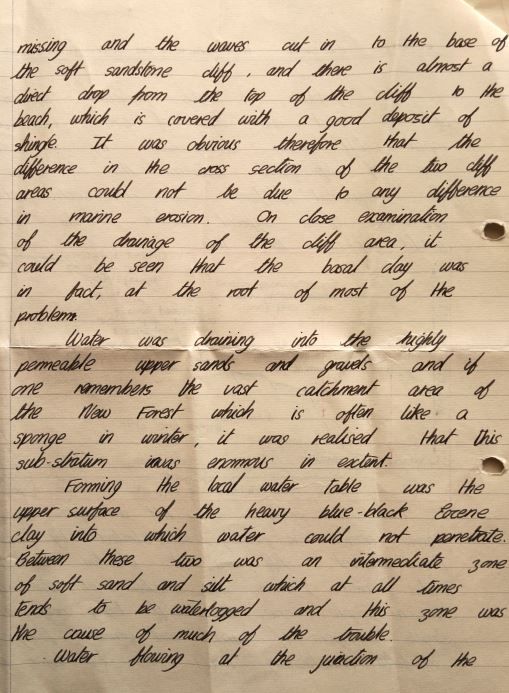 missing and the waves cut in to the base of
the soft sandstone cliff, and there is almost a
direct drop from the top of the cliff to the
beach, which is covered with a good deposit of
shingle. It was obvious therefore that the
difference in the cross section of the two cliff
areas could not be due to any difference
in marine erosion. On close examination
of the drainage of the cliff area, it
could be seen that the basal clay was
in fact, at the root of most of the
problems.
Water was draining into the highly
permeable upper sands and gravels and if
one remembers the vast catchment area of
the New Forest which is often like a
sponge in winter, it was realised that this
sub-stratum was enormous in extent.
Forming the local water table was the
upper surface of the heavy blue-black Eocene
clay into which water could not penetrate.
Between these two was an intermediate zone
of soft sand and silt which at all times
tends to be waterlogged and this zone was
the cause of much of the trouble.
Water flowing at the junction of the